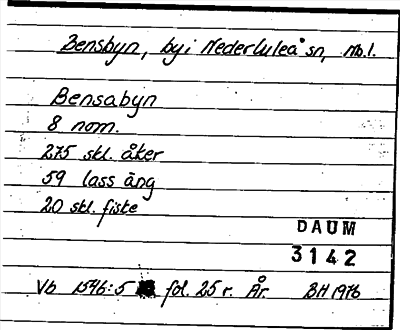 Bensbyn, by i Nederluleå sn, Nb.l.
Bensabyn
8 nom.
275 skl. åker
59 lass äng
20 skl. fiske
DAUM
3142
Vb 1546:5 fol. 25 r. År. BH 1976